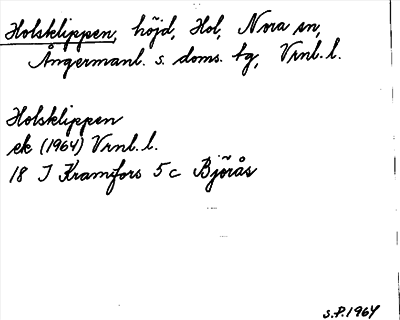 Holsklippen, höjd, Hol, Nora sn,
Ångermanl. s. doms. tg, Vrnl. l.
Holsklippen
ek (1964) Vrnl. l.
18 J Kramfors 5 c Björås
S.P. 1964